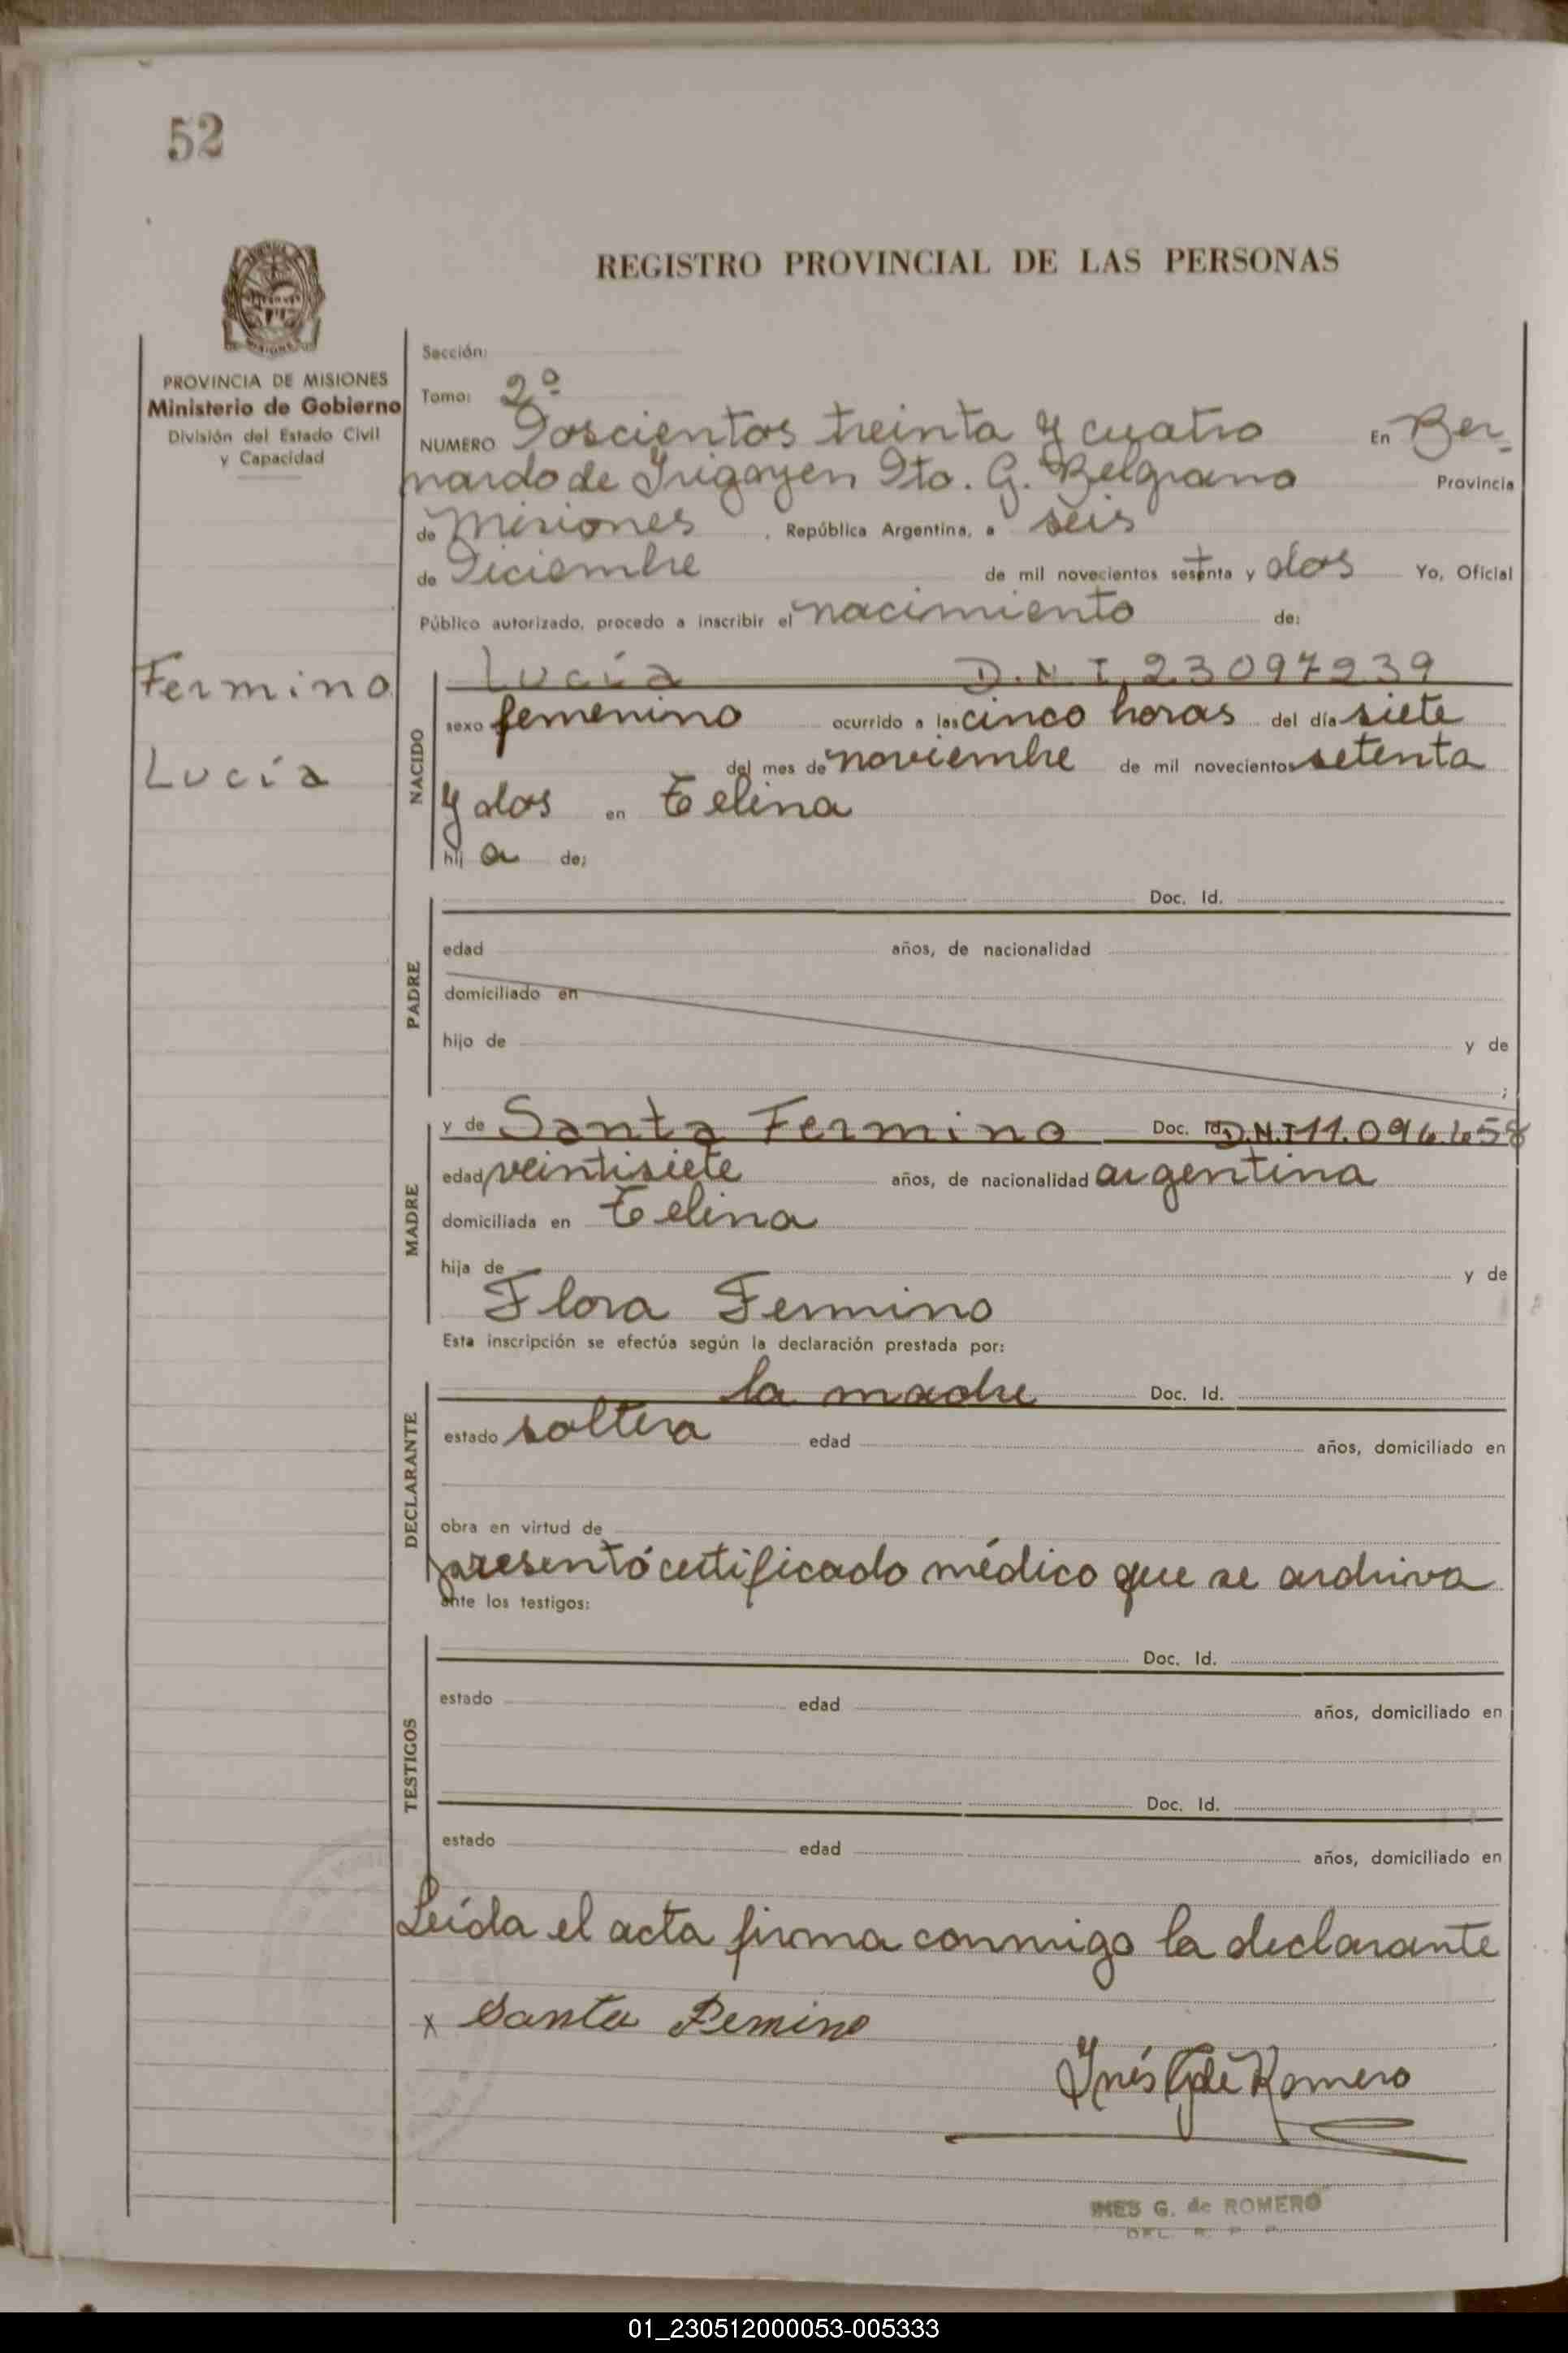 52
REGISTRO PROVINCIAL DE LAS PERSONAS
PROVINCIA DE MISIONES
Ministerio de Gobierno
División del Estado Civil
y Capacidad
Fermino
Lucía
Sección:
Tomo: 2º
NUMERO Doscientos treinta y cuatro En Ber-
nardo de Irigoyen Dto. G. Belgrano Provincia
de Misiones, República Argentina, a seis
de Diciembre de mil novecientos setenta y dos Yo, Oficial
Público autorizado, procedo a inscribir el nacimiento de:
NACIDO
Lucía D.N.I. 23097939
sexo femenino ocurrido a las cinco horas del día siete
del mes de noviembre de mil novecientos setenta
y dos en Telina
hij a de:
PADRE
Doc. Id.
edad años, de nacionalidad
domiciliado en
hijo de y de
;
MADRE
y de Santa Fermino Doc. Id. D.N.I 11.094.
edad veintisiete años, de nacionalidad argentina
domiciliada en Telina
hija de y de
Flora Fermino
Esta inscripción se efectúa según la declaración prestada por:
DECLARANTE
la madre Doc. Id.
estado soltera edad años, domiciliado en
obra en virtud de
presentó certificado médico que se archiva
ante los testigos:
TESTIGOS
Doc. Id.
estado edad años, domiciliado en
Doc. Id.
estado edad años, domiciliado en
Leída el acta firma conmigo la declarante
x Santa Femino
Inés G de Romero
INES G. de ROMERO
DEL. R. P. P.
01_230512000053-005333